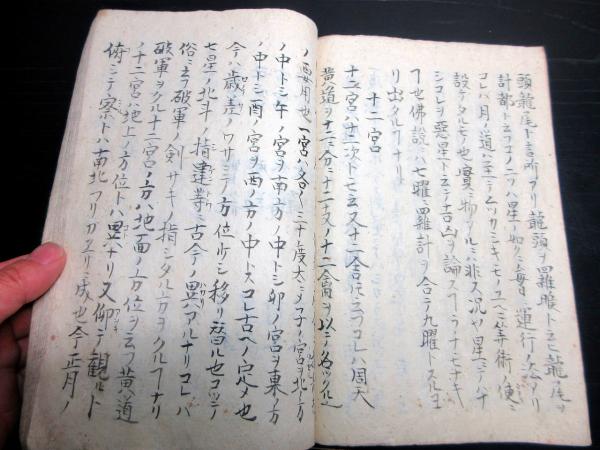 頭龍尾ト言所アリ龍頭ヲ羅睺ト云ヒ龍尾ヲ
計都ト云フコノ二ツハ星ノ如クニ毎日運行ノ次アリ
コレハ月ノ道ニ至テムツカシキモノユヘニ算術ノ便ニ
設ケタルモノ也實ニ物アルニハ非ス況ヤ星ニテナ
シコレヲ悪星ト云テ吉凶ヲ論スアラナキナキ
丁也佛説ニハ七曜ニ羅計ヲ合テ九曜トスルヨ
リ出タルフナリ
十二宮
十二宮ハ十二次ト七云又十二舎氏云フコレハ周天
黄道ヲ十二ニ分ニ十二支ノ十二舎ヲ以テ名ツク
ノ要用也一宮ハ各々三十度大ニメ子ノ宮ヲ北ト方
ノ中トシ午ノ宮ヲ南方ノ中トシ卯ノ宮ヲ東ト方
ノ中トシ酉ノ宮ヲ西ノ方ノ中トスコレ古ヘノ定メ也
今ハ歳差ノワサニテ方位少シ移リ替ル也コッテ
七星ノ北斗ノ指建等ニ古今ノ異アルナリコレハ
俗ニ云フ破軍ノ剣サキノ指シタル方ヲクルフナリ
破軍ヲクル十二宮ノ方ハ地面ノ方位ヲ云フ黄道
ノ十二宮ハ地上ノ方位トハ異ナリ又仰テ観ルト
俯シテ察トハ南北フリカワリニ成也今正月ノ